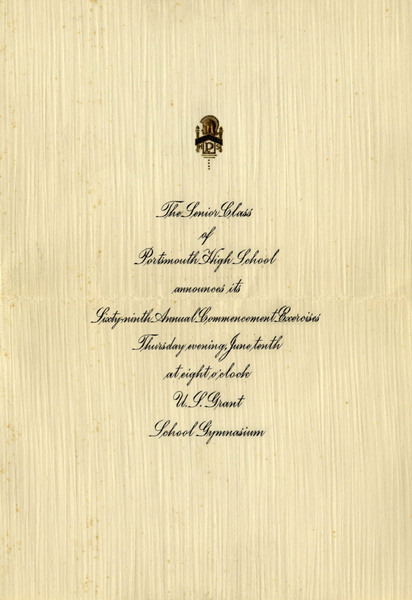 P
The Senior Class
of
Portsmouth High School
announces its
Sixty-ninth Annual Commencement Exercises
Thursday evening, June, tenth
at eight o'clock
U. S. Grant
School Gymnasium